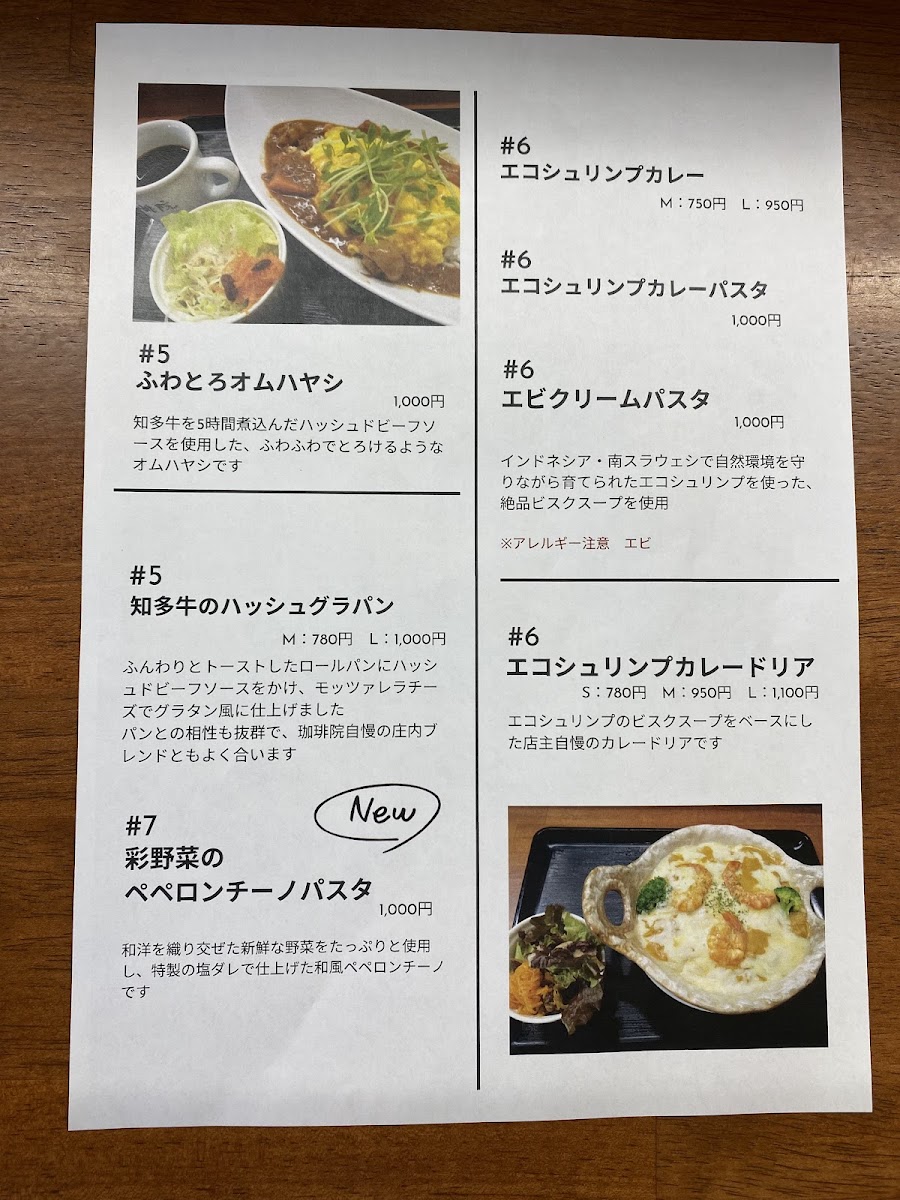 #5
ふわとろオムハヤシ
1,000円
知多牛を5時間煮込んだハッシュドビーフソ
ースを使用した、ふわふわでとろけるような
オムハヤシです
#5
知多牛のハッシュグラパン
M：780円　L：1,000円
ふんわりとトーストしたロールパンにハッシ
ュドビーフソースをかけ、モッツァレラチー
ズでグラタン風に仕上げました
パンとの相性も抜群で、珈琲院自慢の庄内ブ
レンドともよく合います
New
#7
彩野菜の
ペペロンチーノパスタ
1,000円
和洋を織り交ぜた新鮮な野菜をたっぷりと使用
し、特製の塩ダレで仕上げた和風ペペロンチーノ
です
#6
エコシュリンプカレー
M：750円　L：950円
#6
エコシュリンプカレーパスタ
1,000円
#6
エビクリームパスタ
1,000円
インドネシア・南スラウェシで自然環境を守
りながら育てられたエコシュリンプを使った、
絶品ビスクスープを使用
※アレルギー注意　エビ
#6
エコシュリンプカレードリア
S：780円　M：950円　L：1,100円
エコシュリンプのビスクスープをベースにし
た店主自慢のカレードリアです